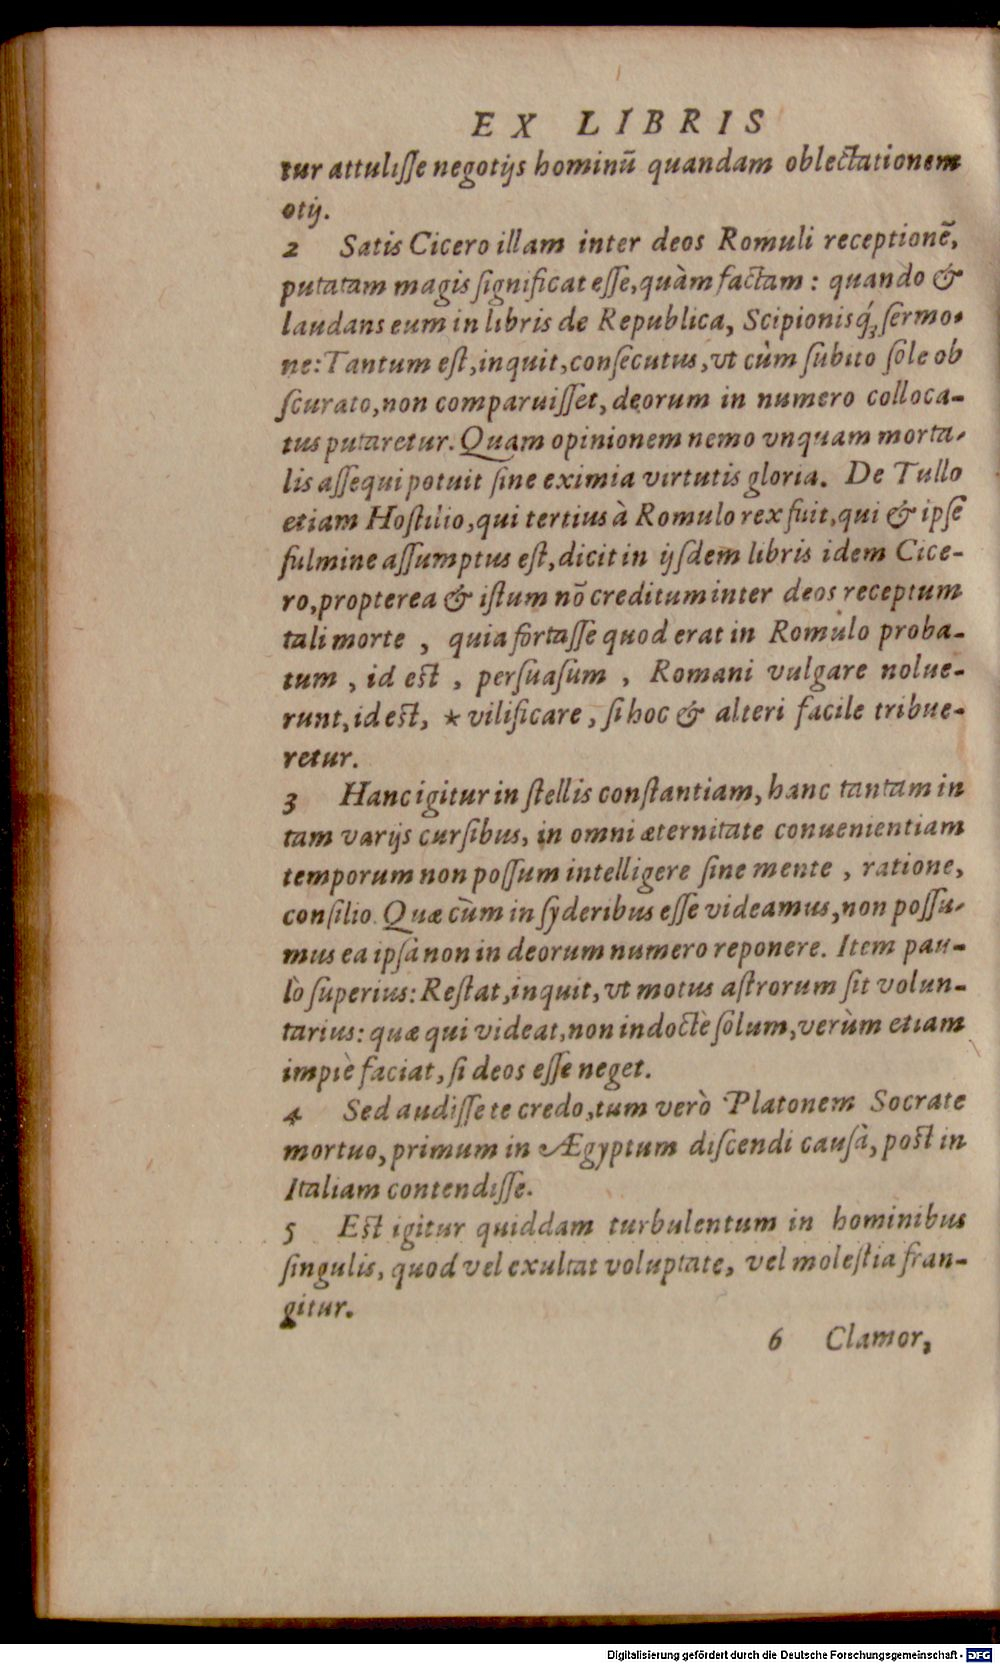 EX LIBRIS
tur attulisse negotijs hominū quandam oblectationem
otij.
2 Satis Cicero illam inter deos Romuli receptionē,
putatam magis significat esse, quàm factam: quando &
laudans eum in libris de Republica, Scipionisq́; sermo-
ne: Tantum est, inquit, consecutus, vt cùm subito sole ob
scurato, non comparuisset, deorum in numero colloca-
tus putaretur. Quam opinionem nemo vnquam morta-
lis assequi potuit sine eximia virtutis gloria. De Tullo
etiam Hostilio, qui tertius à Romulo rex fuit, qui & ipse
fulmine assumptus est, dicit in ijsdem libris idem Cice-
ro, propterea & istum nō creditum inter deos receptum
tali morte, quia fortasse quod erat in Romulo proba-
tum, id est, persuasum, Romani vulgare nolue-
runt, id est, * vilificare, si hoc & alteri facile tribue-
retur.
3 Hanc igitur in stellis constantiam, hanc tantam in
tam varijs cursibus, in omni æternitate conuenientiam
temporum non possum intelligere sine mente, ratione,
consilio. Quæ cùm in syderibus esse videamus, non possu-
mus ea ipsà non in deorum numero reponere. Item pau-
lò superius: Restat, inquit, vt motus astrorum sit volun-
tarius: quæ qui videat, non indoctè solum, verùm etiam
impiè faciat, si deos esse neget.
4 Sed audisse te credo, tum verò Platonem Socrate
mortuo, primum in Ægyptum discendi causà, post in
Italiam contendisse.
5 Est igitur quiddam turbulentum in hominibus
singulis, quod vel exultat voluptate, vel molestia fran-
gitur.
6 Clamor,
Digitalisierung gefördert durch die Deutsche Forschungsgemeinschaft - DFG